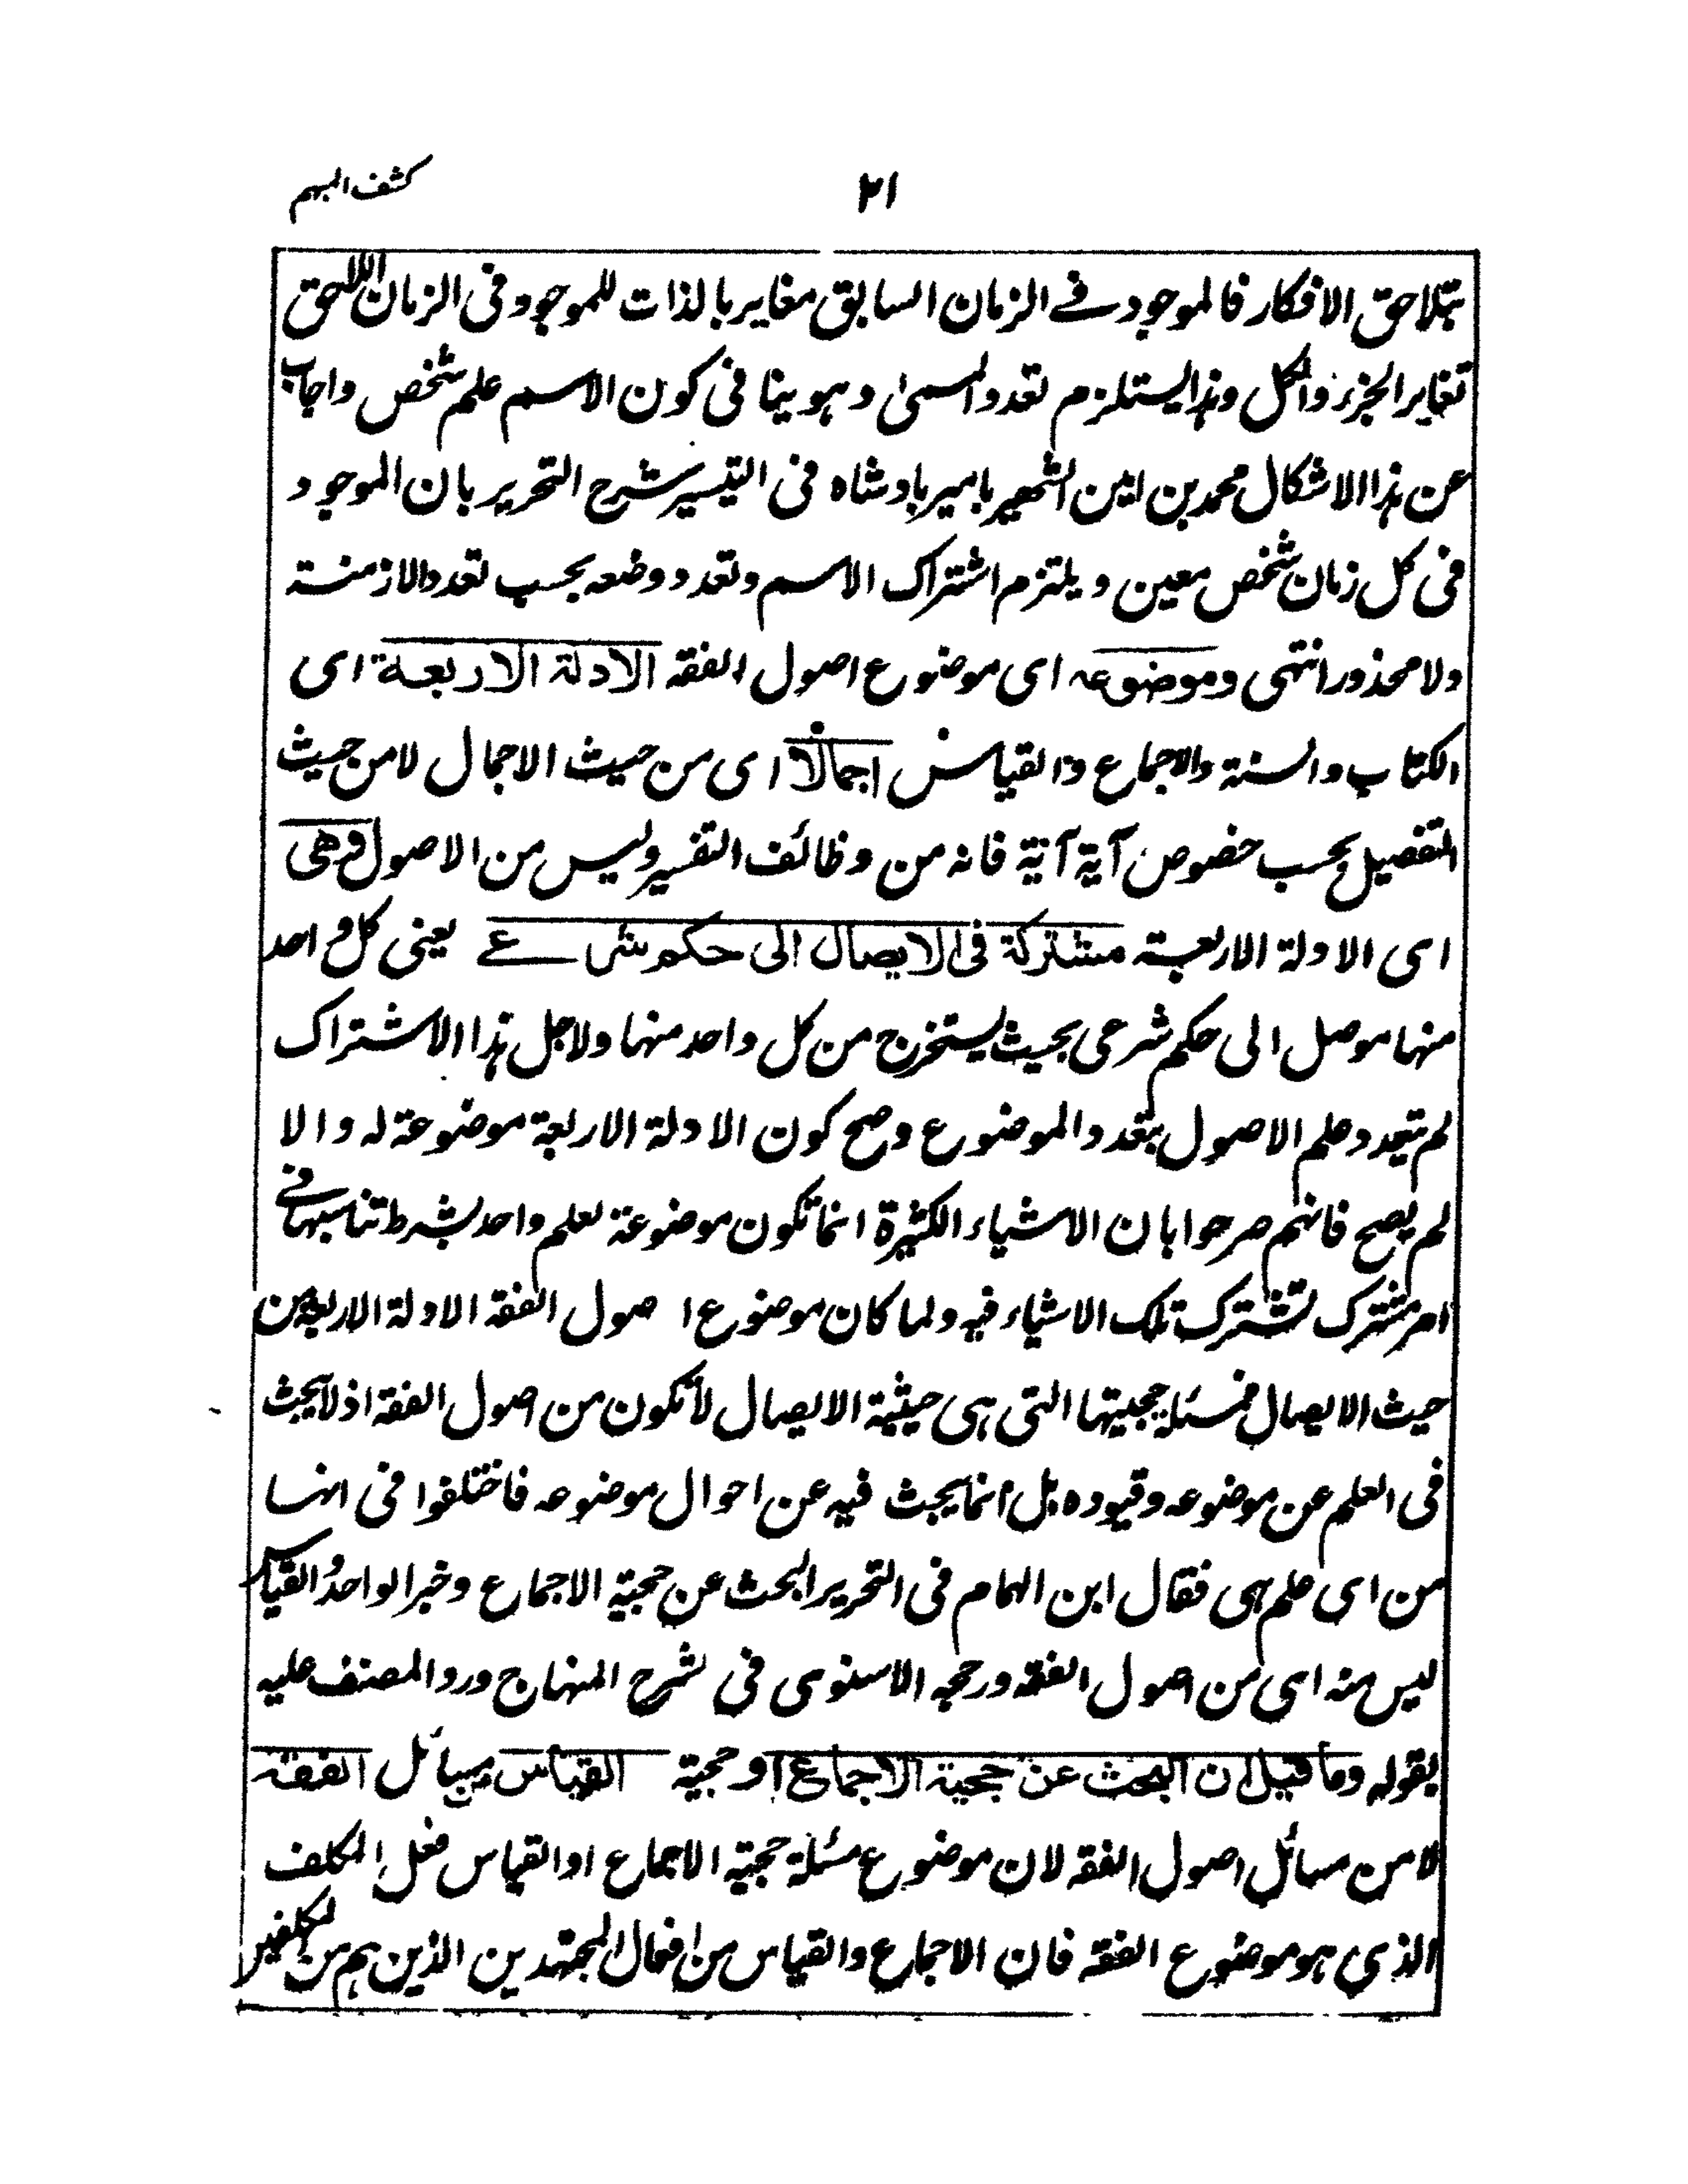 كشف المبهم
٢١
بتلاحق الافكار فالموجود فے الزمان السابق مغاير بالذات للموجود فى الزمان اللاحق
تغاير الجزء والكل وهذا يستلزم تعدد المسمىٰ وهو ينافى كون الاسم علم شخص واجاب
عن هذا الاشكال محمد بن امين الشهير بامير بادشاه فى التيسير شرح التحرير بان الموجود
فى كل زمان شخص معين ويلتزم اشتراك الاسم وتعدد وضعه بحسب تعدد الازمنة
ولا محذور انتهى وموضوعه اى موضوع اصول الفقه الادلة الاربعة اى
الكتاب والسنة والاجماع والقياس اجمالاً اى من حيث الاجمال لا من حيث
التفصيل بحسب خصوص آية آية فانه من وظائف التفسير وليس من الاصول وهى
اى الادلة الاربعة مشتركة فى الايصال الى حكم شرعے يعنى كل واحد
منها موصل الى حكم شرعى بحيث يستخرج من كل واحد منها ولاجل هذا الاشتراك
لم يتعدد علم الاصول بتعدد الموضوع وصح كون الادلة الاربعة موضوعة له والا
لم يصح فانهم صرحوا بان الاشياء الكثيرة انما تكون موضوعة لعلم واحد بشرط تناسبها فے
امر مشترك تشترك تلك الاشياء فيه ولما كان موضوع اصول الفقه الادلة الاربعة من
حيث الايصال فمسئلة حجيتها التى هى حيثية الايصال لا تكون من اصول الفقه اذ لا يبحث
فى العلم عن موضوعه وقيوده بل انما يبحث فيه عن احوال موضوعه فاختلفوا فى انها
من اى علم هى فقال ابن الهمام فى التحرير البحث عن حجية الاجماع وخبر الواحد والقياس
ليس منه اى من اصول الفقه ورجحه الاسنوى فى شرح المنهاج ورد المصنف عليه
بقوله وما قيل ان البحث عن حجية الاجماع او حجية القياس من مسائل الفقه
لا من مسائل اصول الفقه لان موضوع مسئلة حجية الاجماع او القياس فعل المكلف
الذي هو موضوع الفقه فان الاجماع والقياس من افعال المجتهدين الذين هم من المكلفين